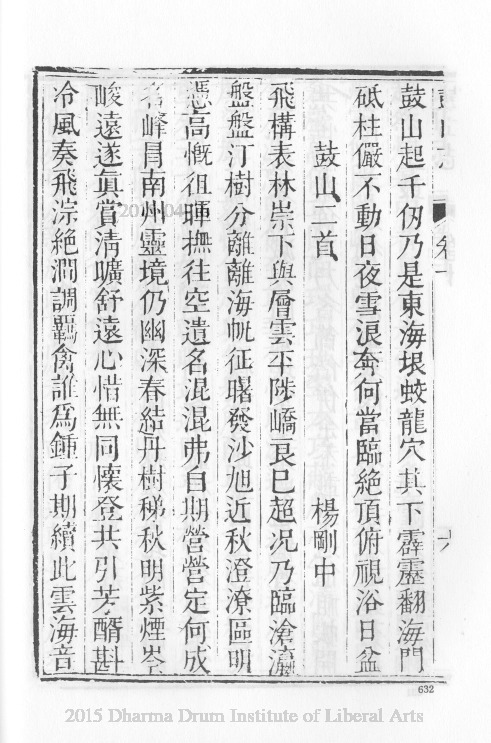 鼓山起千仞乃是東海垠蛟龍穴其下霹靂翻海門
砥柱儼不動日夜雪浪奔何當臨絶頂俯視浴日盆
鼓山二首 楊剛中
飛構表林崇下與層雲平陟嶠良已超况乃臨滄瀛
盤盤汀樹分離離海帆征曙發沙旭近秋澄潦區明
憑高慨徂暉撫往空遺名混混弗自期營營定何成
名峰冒南州靈境仍幽深春結丹樹稊秋明紫煙岑
峻遠遂眞賞淸曠舒遠心惜無同懷登共引芳醑斟
冷風奏飛淙絶澗調羈禽誰爲鍾子期續此雲海音
632
2015 Dharma Drum Institute of Liberal Arts